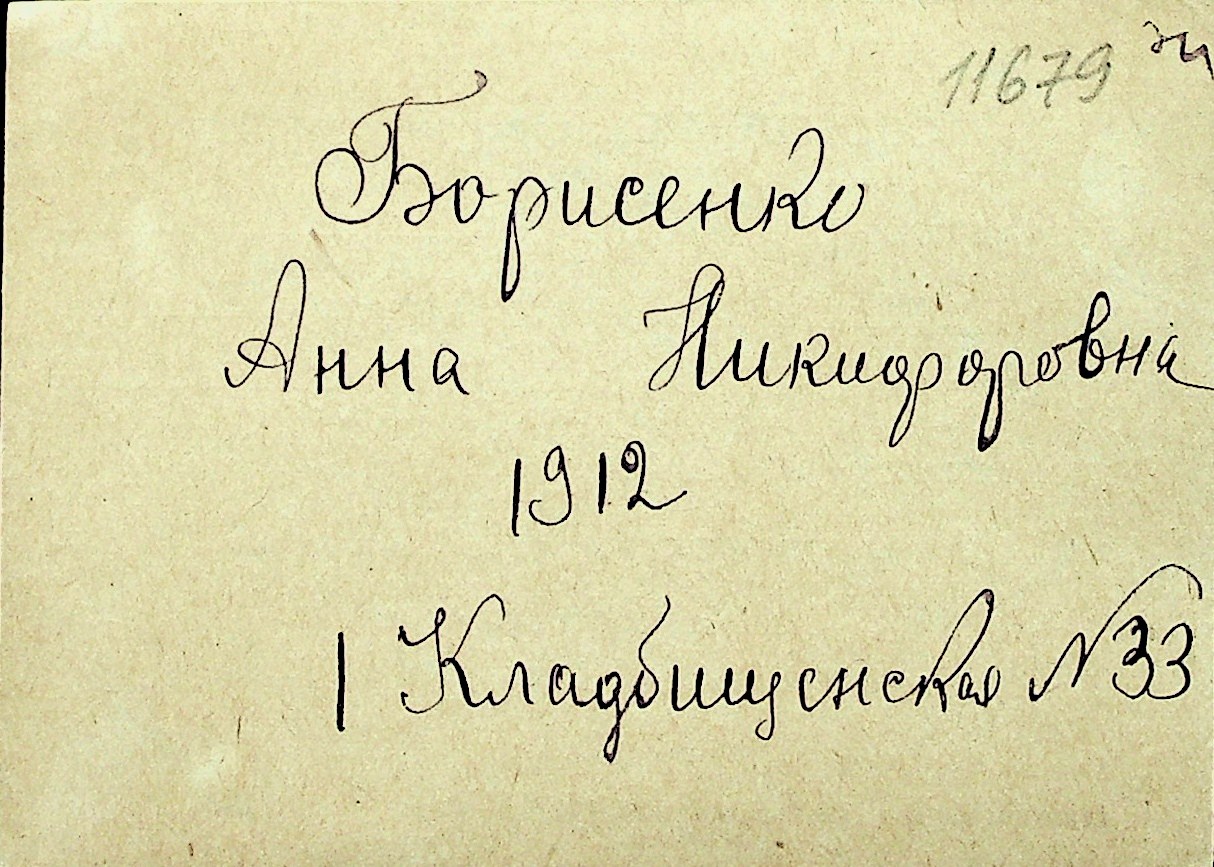 11679
Борисенко
Анна Никифоровна
1912
1 Кладбищенская №33